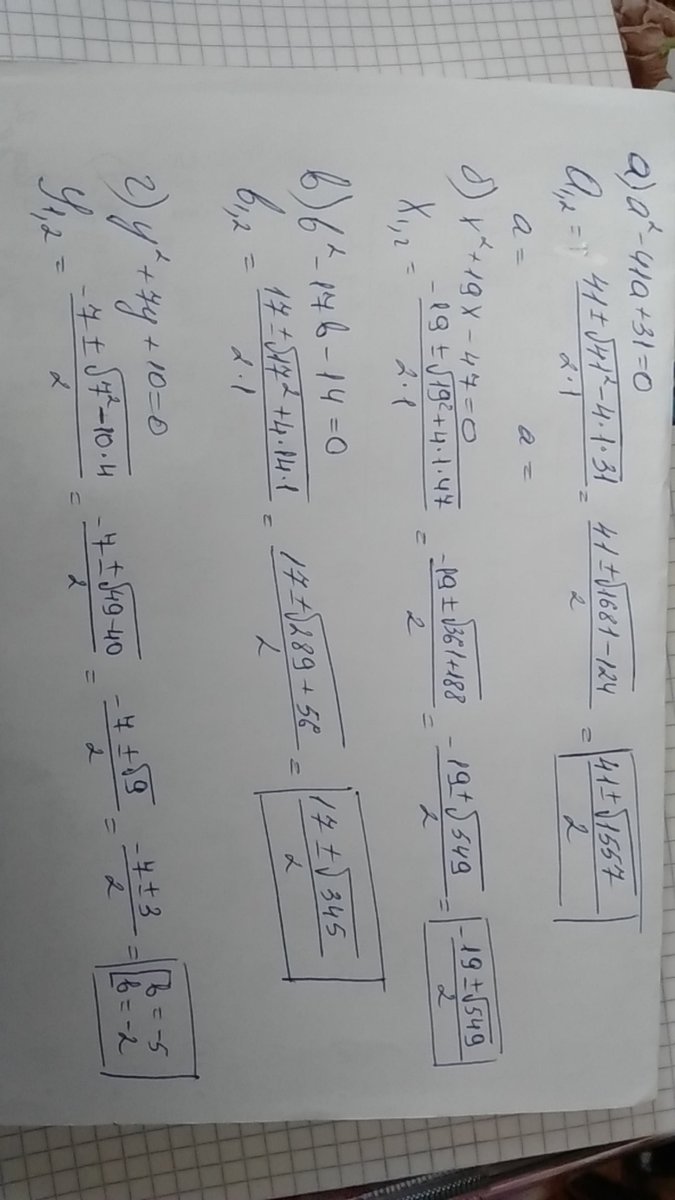 а) a² - 41a + 31 = 0
a₁,₂ = (41 ± √(41² - 4·1·31))/(2·1) = (41 ± √(1681 - 124))/2 = (41 ± √1557)/2
a = a =
б) x² + 19x - 47 = 0
x₁,₂ = (-19 ± √(19² + 4·1·47))/(2·1) = (-19 ± √(361 + 188))/2 = (-19 ± √549)/2 = (-19 ± √549)/2
в) b² - 17b - 14 = 0
b₁,₂ = (17 ± √(17² + 4·14·1))/(2·1) = (17 ± √(289 + 56))/2 = (17 ± √345)/2
г) y² + 7y + 10 = 0
y₁,₂ = (-7 ± √(7² - 10·4))/2 = (-7 ± √(49 - 40))/2 = (-7 ± √9)/2 = (-7 ± 3)/2 = [b = -5
[b = -2